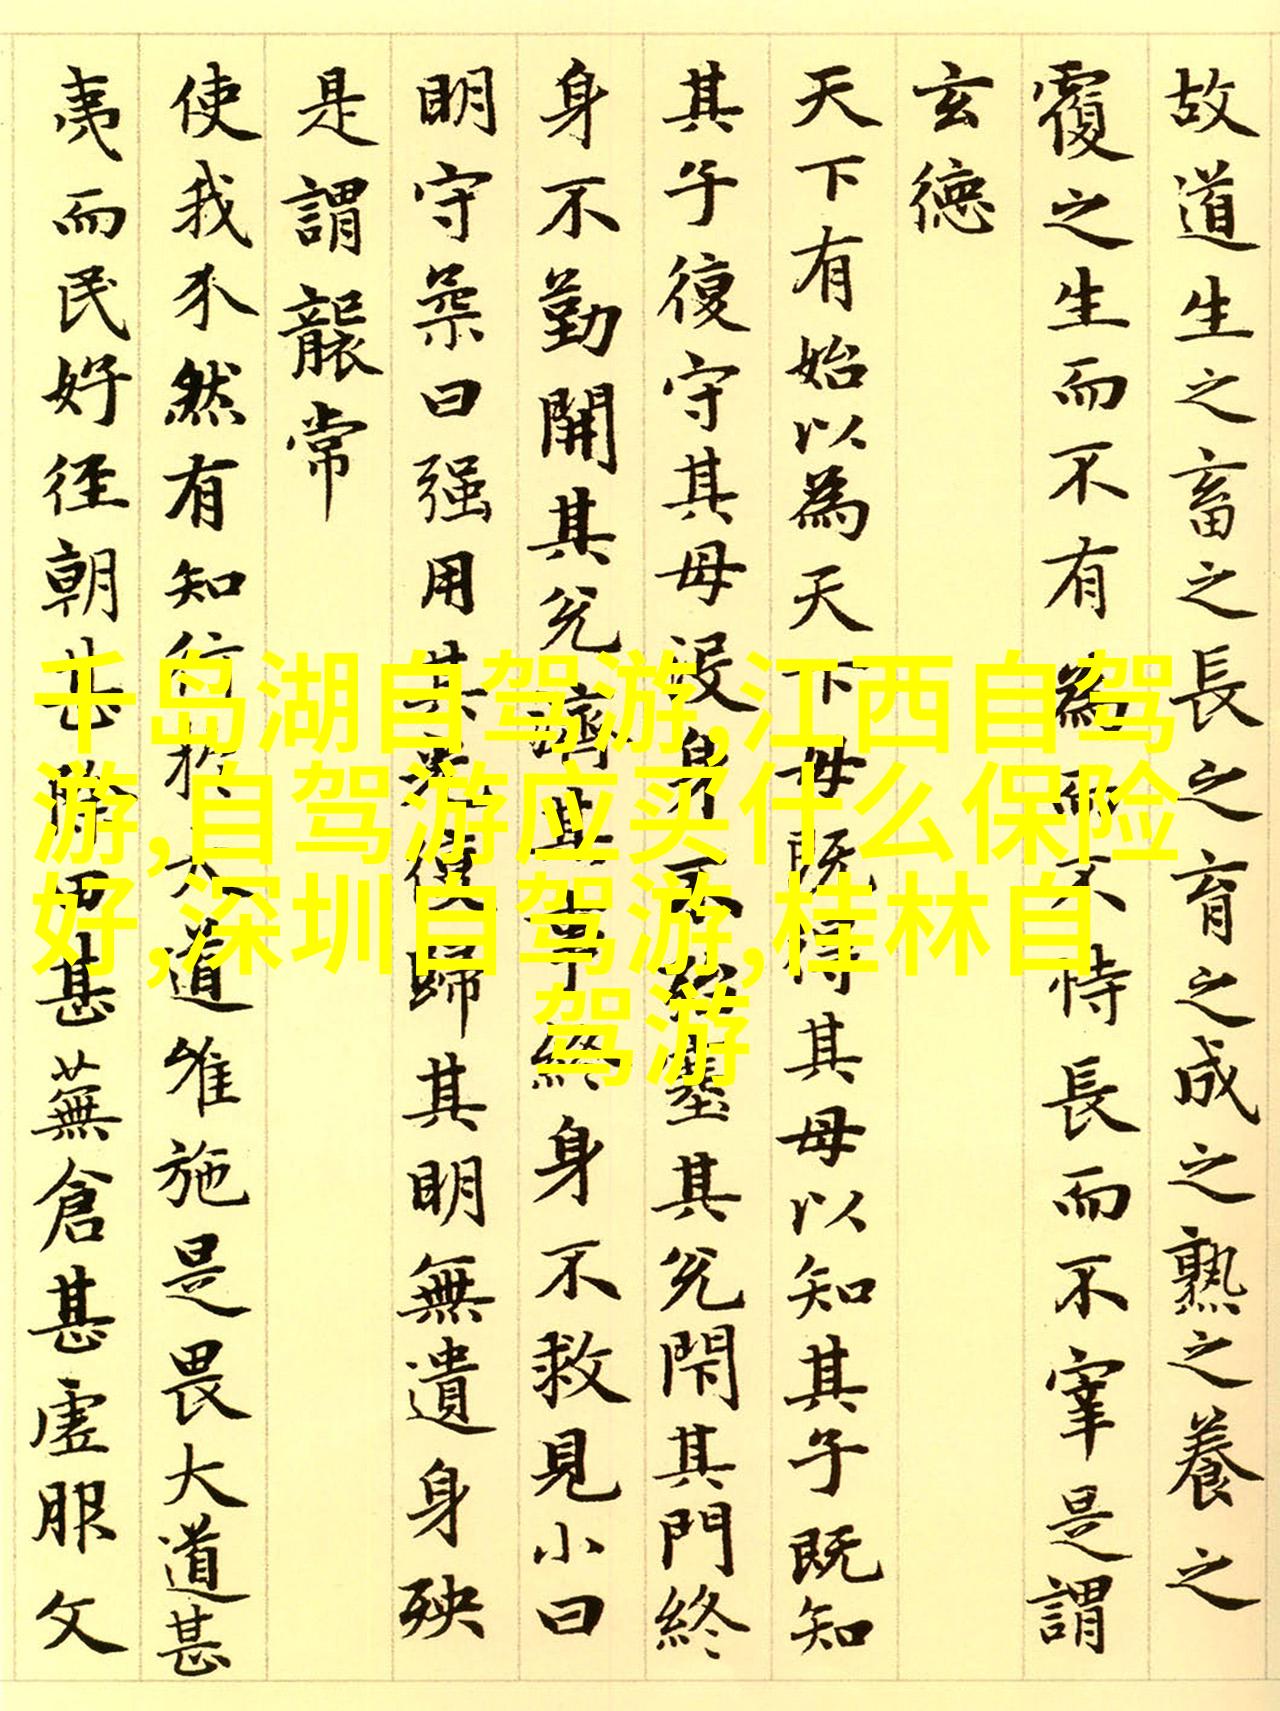 故道生之畜之長之育之成之熟之養之
覆之生而不有為而不恃長而不宰是謂
玄德
天下有始以為天下母既得其母以知其子既知
其子復守其母没身不殆塞其兊閇其門終
身不勤開其兊濟其事終身不救見小曰
明守柔曰强用其光復歸其明無遺身殃
是謂襲常
使我介然有知行於大道唯施是畏大道甚
夷而民好径朝甚除田甚蕪倉甚虛服文
千岛湖自驾游,江西自驾
游,自驾游应买什么保险
好,深圳自驾游,桂林自
驾游